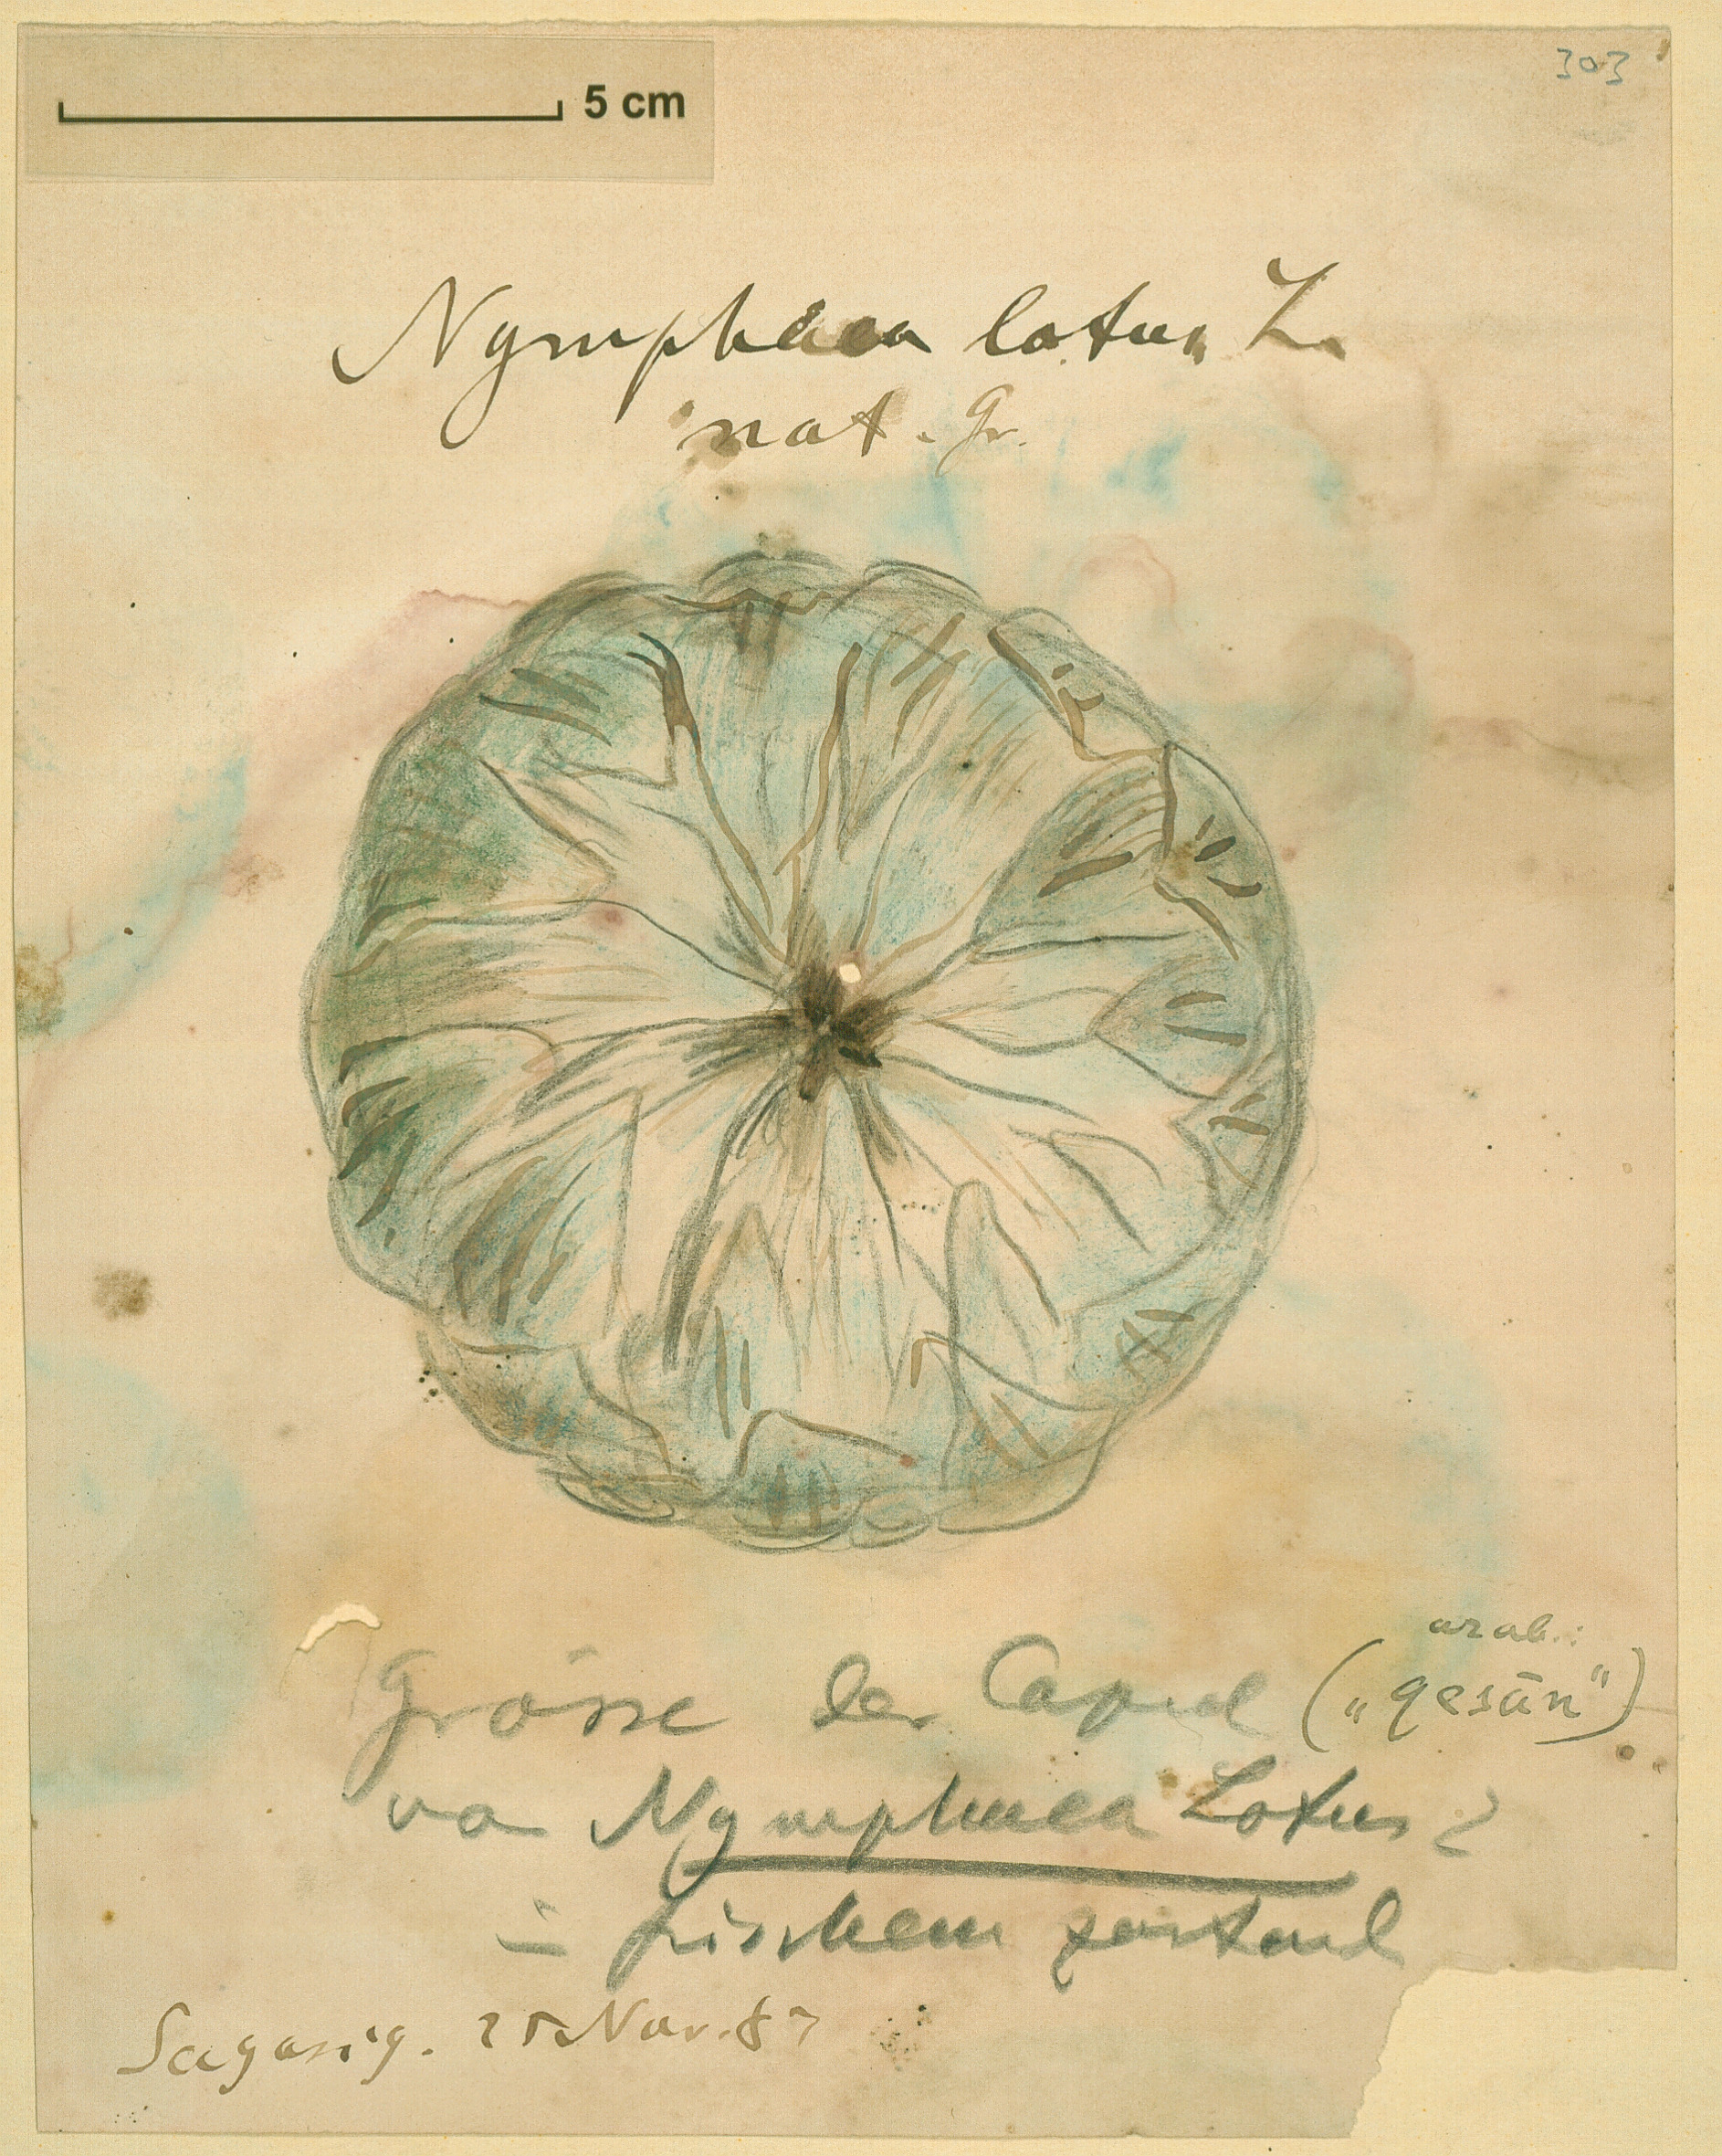 303
5 cm
Nymphaea lotus L.
nat. Gr.
arab.:
Grösse der Capsel („qesān")
von Nymphaea Lotus L
in frischem zustand
Sagasig. 25 Nov. 87